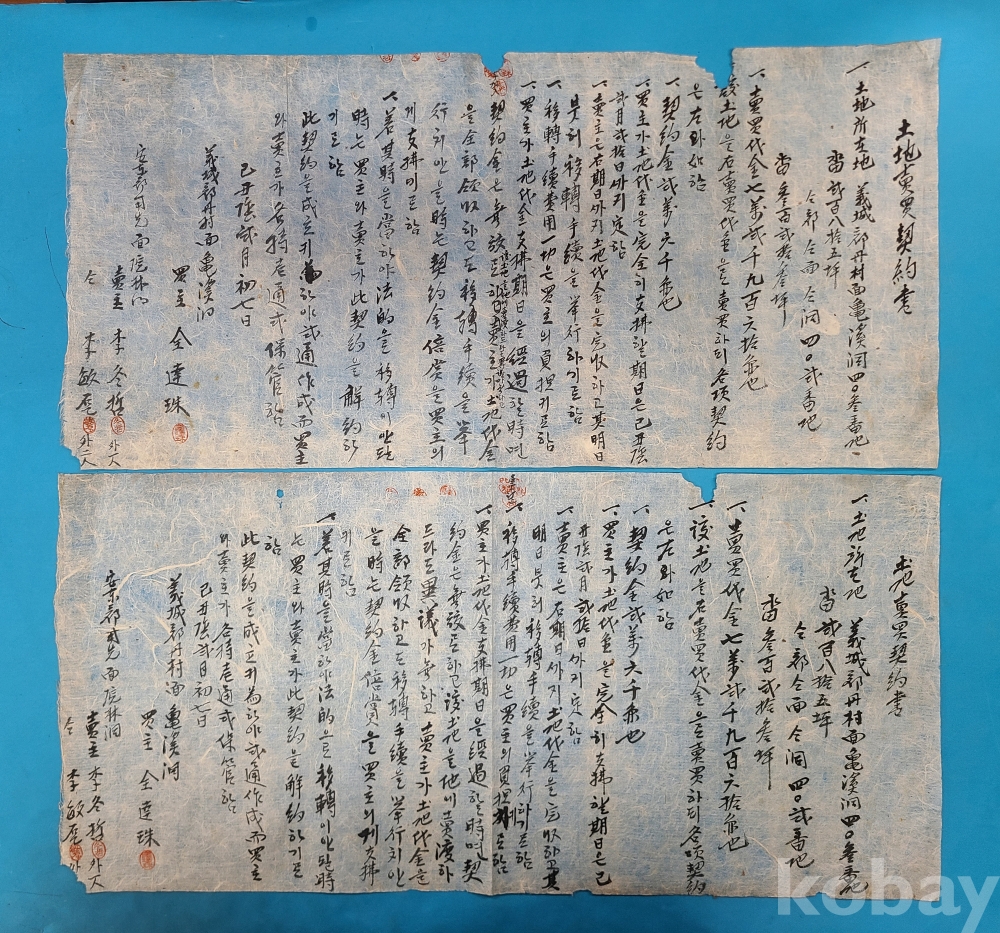 土地賣買契約書
一、土地所在地 義城郡丹村面亀溪洞四〇叄番地
畓 貳百八拾五坪
仝郡仝面仝洞四〇貳番地
畓 叄百貳拾叄坪
一、賣買代金七萬貳千九百六拾원也
一、該土地을右賣買代金을로賣買하되各項契約
은左와如함
一、契約金貳萬六千원也
一、買主가土地代金을完全히支拂할期日은己丑陰
貳月貳拾日까지定함
一、賣主은右期日까지土地代金을完收하고其明日
붓허移轉手續을擧行하기로함
一、移轉手續費用一切은買主의負担키로함
一、買主가土地代金支拂期日을經過할時면
契約金은無效로하고賣主가土地代金
을全部領收하고도移轉手續을擧
行치안을時는契約金倍賞을買主의
게支拂키로함
一、若其時을當하야法的을로移轉이안될
時는買主와賣主가此契約을解約하
기로함
此契約을成立키爲하야貳通作成而買主
와賣主가各持壱通式保管함
己丑陰貳月初七日
義城郡丹村面亀溪洞
買主 金達珠
安東郡一面院林洞
賣主 李冬哲 外人
仝 李敏 外人
土地賣買契約書
一、土地所在地 義城郡丹村面亀溪洞四〇叄番地
畓 貳百八拾五坪
仝郡仝面仝洞四〇貳番地
畓 叄百貳拾叄坪
一、賣買代金七萬貳千九百六拾원也
一、該土地을右賣買代金을로賣買하되各項契約
은左와如함
一、契約金貳萬六千원也
一、買主가土地代金을完全히支拂할期日은己
丑陰貳月貳拾日까지定함
一、賣主은右期日까지土地代金을完收하고其
明日붓허移轉手續을擧行하기로함
一、移轉手續費用一切은買主의負担키로함
一、買主가土地代金支拂期日을經過할時면契
約金은無效로하고該土地을他에賣渡하
드라도異議가無하고賣主가土地代金을
全部領收하고도移轉手續을擧行치안
을時는契約金倍賞을買主의게支拂
키로함
一、若其時을當하야法的으로移轉이안될時
는買主와賣主가此契約을解約하기로
함
此契約을成立키爲하야貳通作成而買主
와賣主가各持壱通式保管함
己丑陰貳月初七日
義城郡丹村面亀溪洞
買主 金達珠
安東郡一面院林洞
賣主 李冬哲 外人
仝 李敏 外
kobay